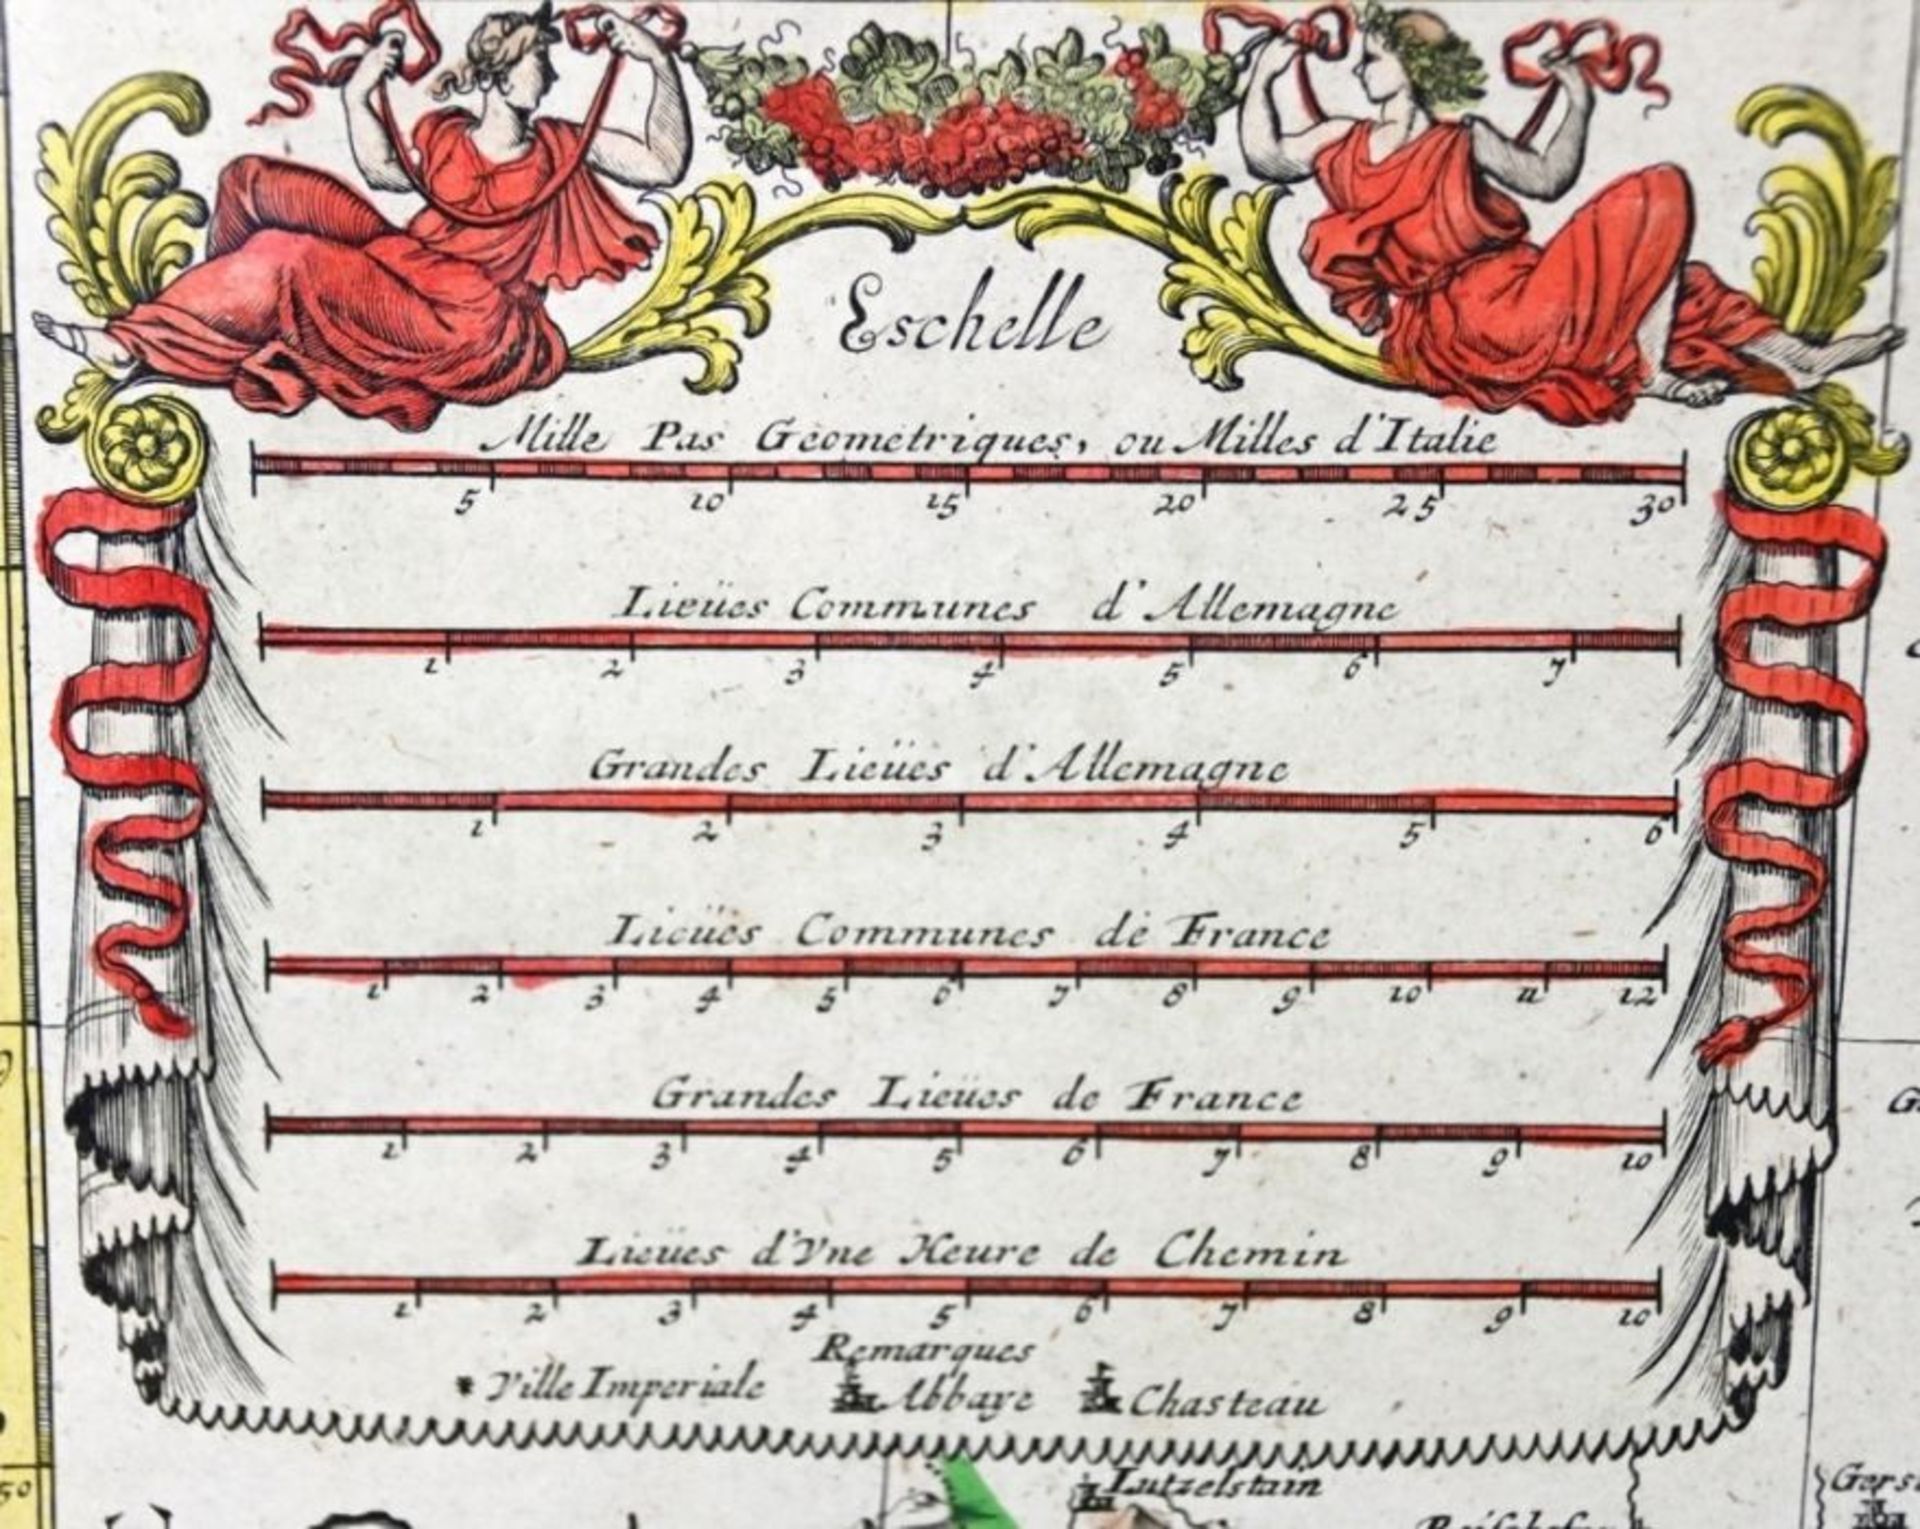 Eschelle
Mille Pas Geometriques, ou Milles d'Italie
5 10 15 20 25 30
Lieües Communes d'Allemagne
1 2 3 4 5 6 7
Grandes Lieües d'Allemagne
1 2 3 4 5 6
Lieües Communes de France
1 2 3 4 5 6 7 8 9 10 11 12
Grandes Lieües de France
1 2 3 4 5 6 7 8 9 10
Lieües d'Vne Heure de Chemin
1 2 3 4 5 6 7 8 9 10
Remarques
Ville Imperiale Abbaye Chasteau
Lutzelstain
50